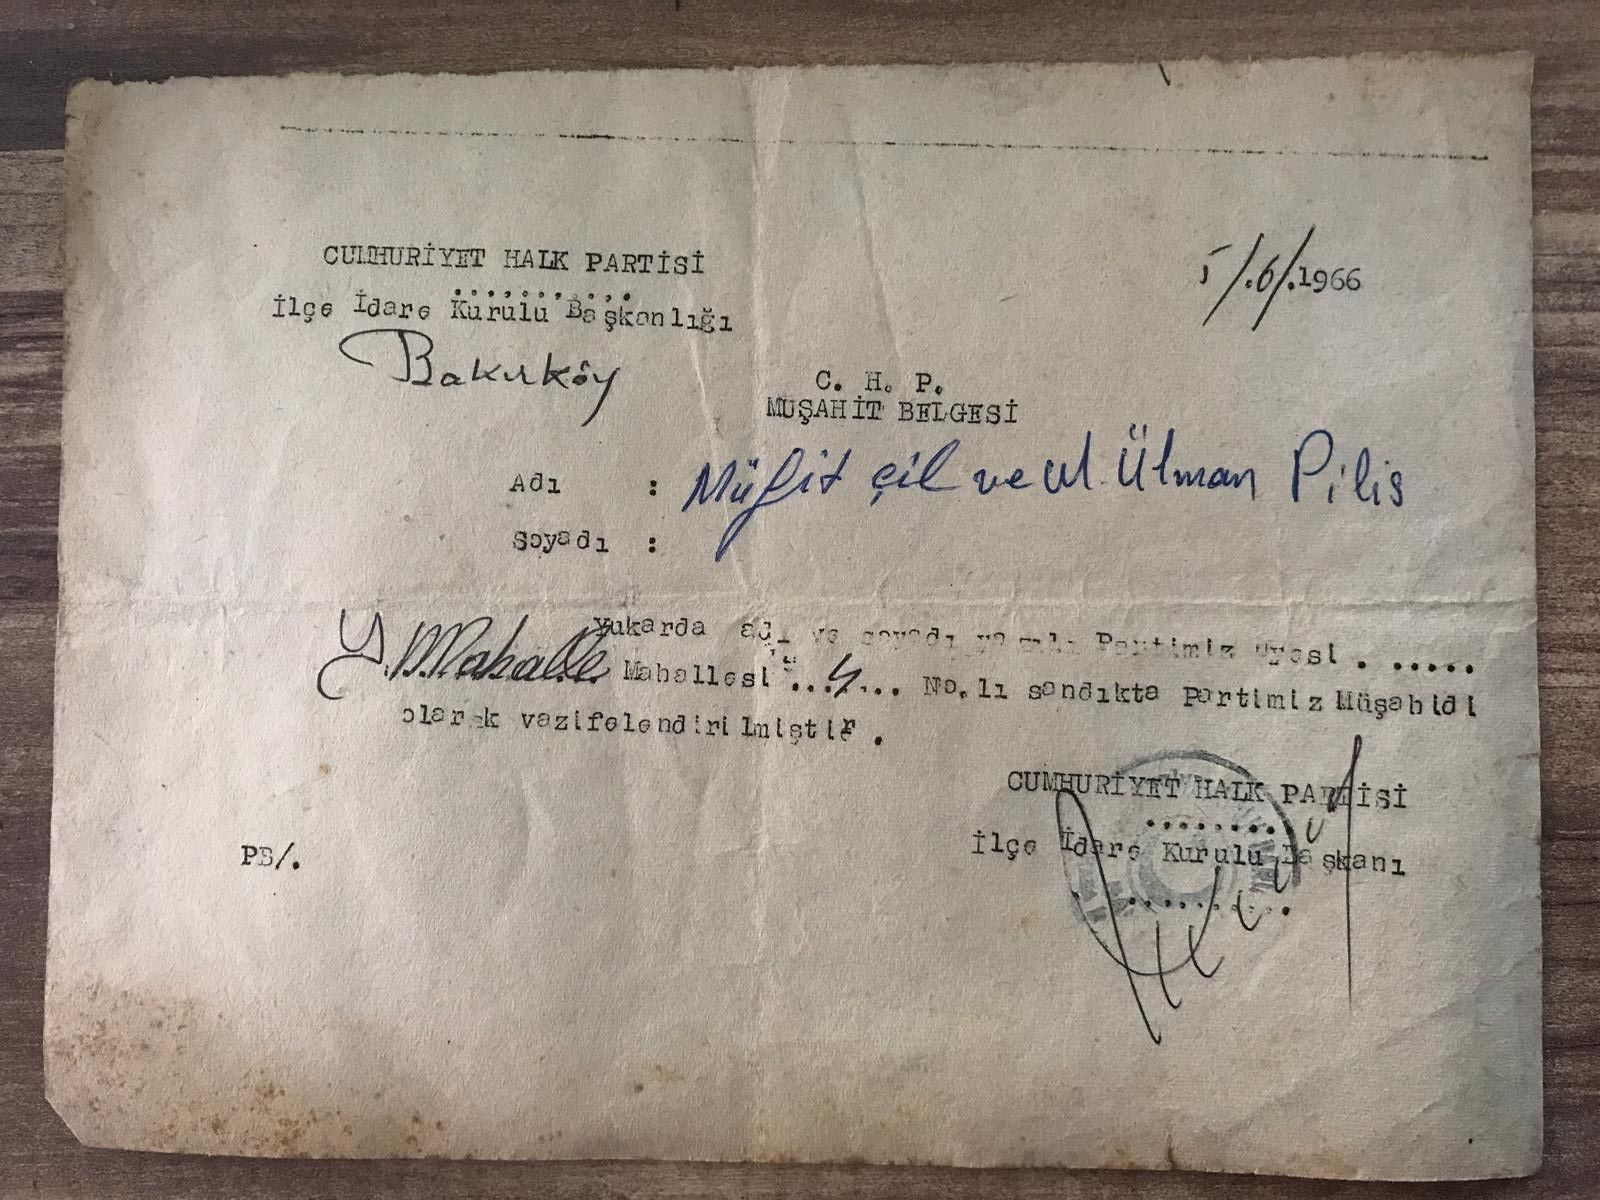 CUMHURİYET HALK PARTİSİ
5/.6/.1966
..........
İlçe İdare Kurulu Başkanlığı
Bakırköy
C. H. P.
MÜŞAHİT BELGESİ
Adı : Müfit Çil ve M. Ülman Pilis
Soyadı :
Yukarda adı ve soyadı yazılı Partimiz üyesi . .....
Y. Mahalle Mahallesi ...4... No.lı sandıkta Partimiz Müşahidi
olarak vazifelendirilmiştir .
CUMHURİYET HALK PARTİSİ
.........
İlçe İdare Kurulu Başkanı
..........
PB/.